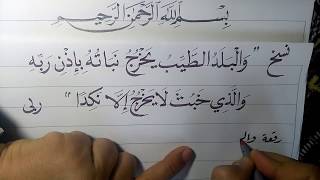 بِسْمِ اللَّهِ الرَّحْمَنِ الرَّحِيمِ
نسخ "وَالْبَلَدُ الطَّيِّبُ يَخْرُجُ نَبَاتُهُ بِإِذْنِ رَبِّهِ
وَالَّذِي خَبُثَ لَا يَخْرُجُ إِلَّا نَكِدًا"
رقعة وال